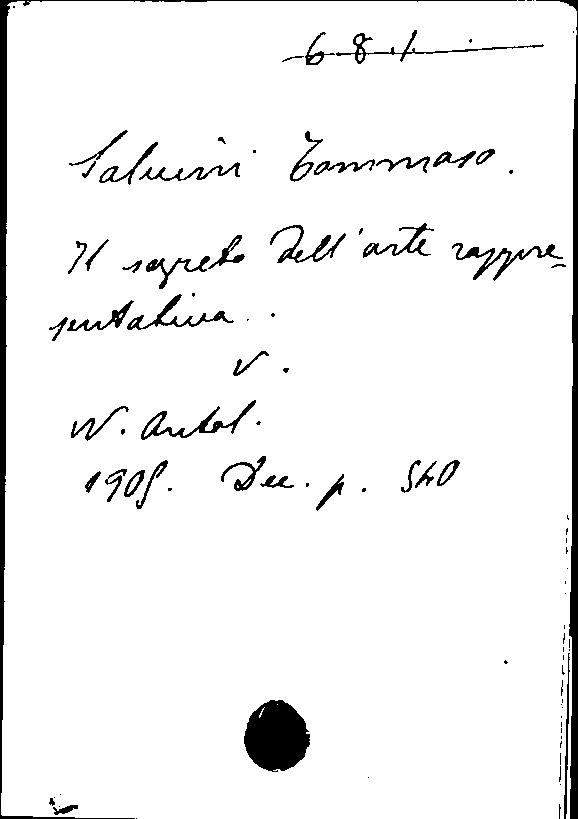 6 8 1
Salvini Tommaso.
Il segreto dell'arte rappre-
sentativa.
V.
N. Antol.
1905. Dec. p. 540